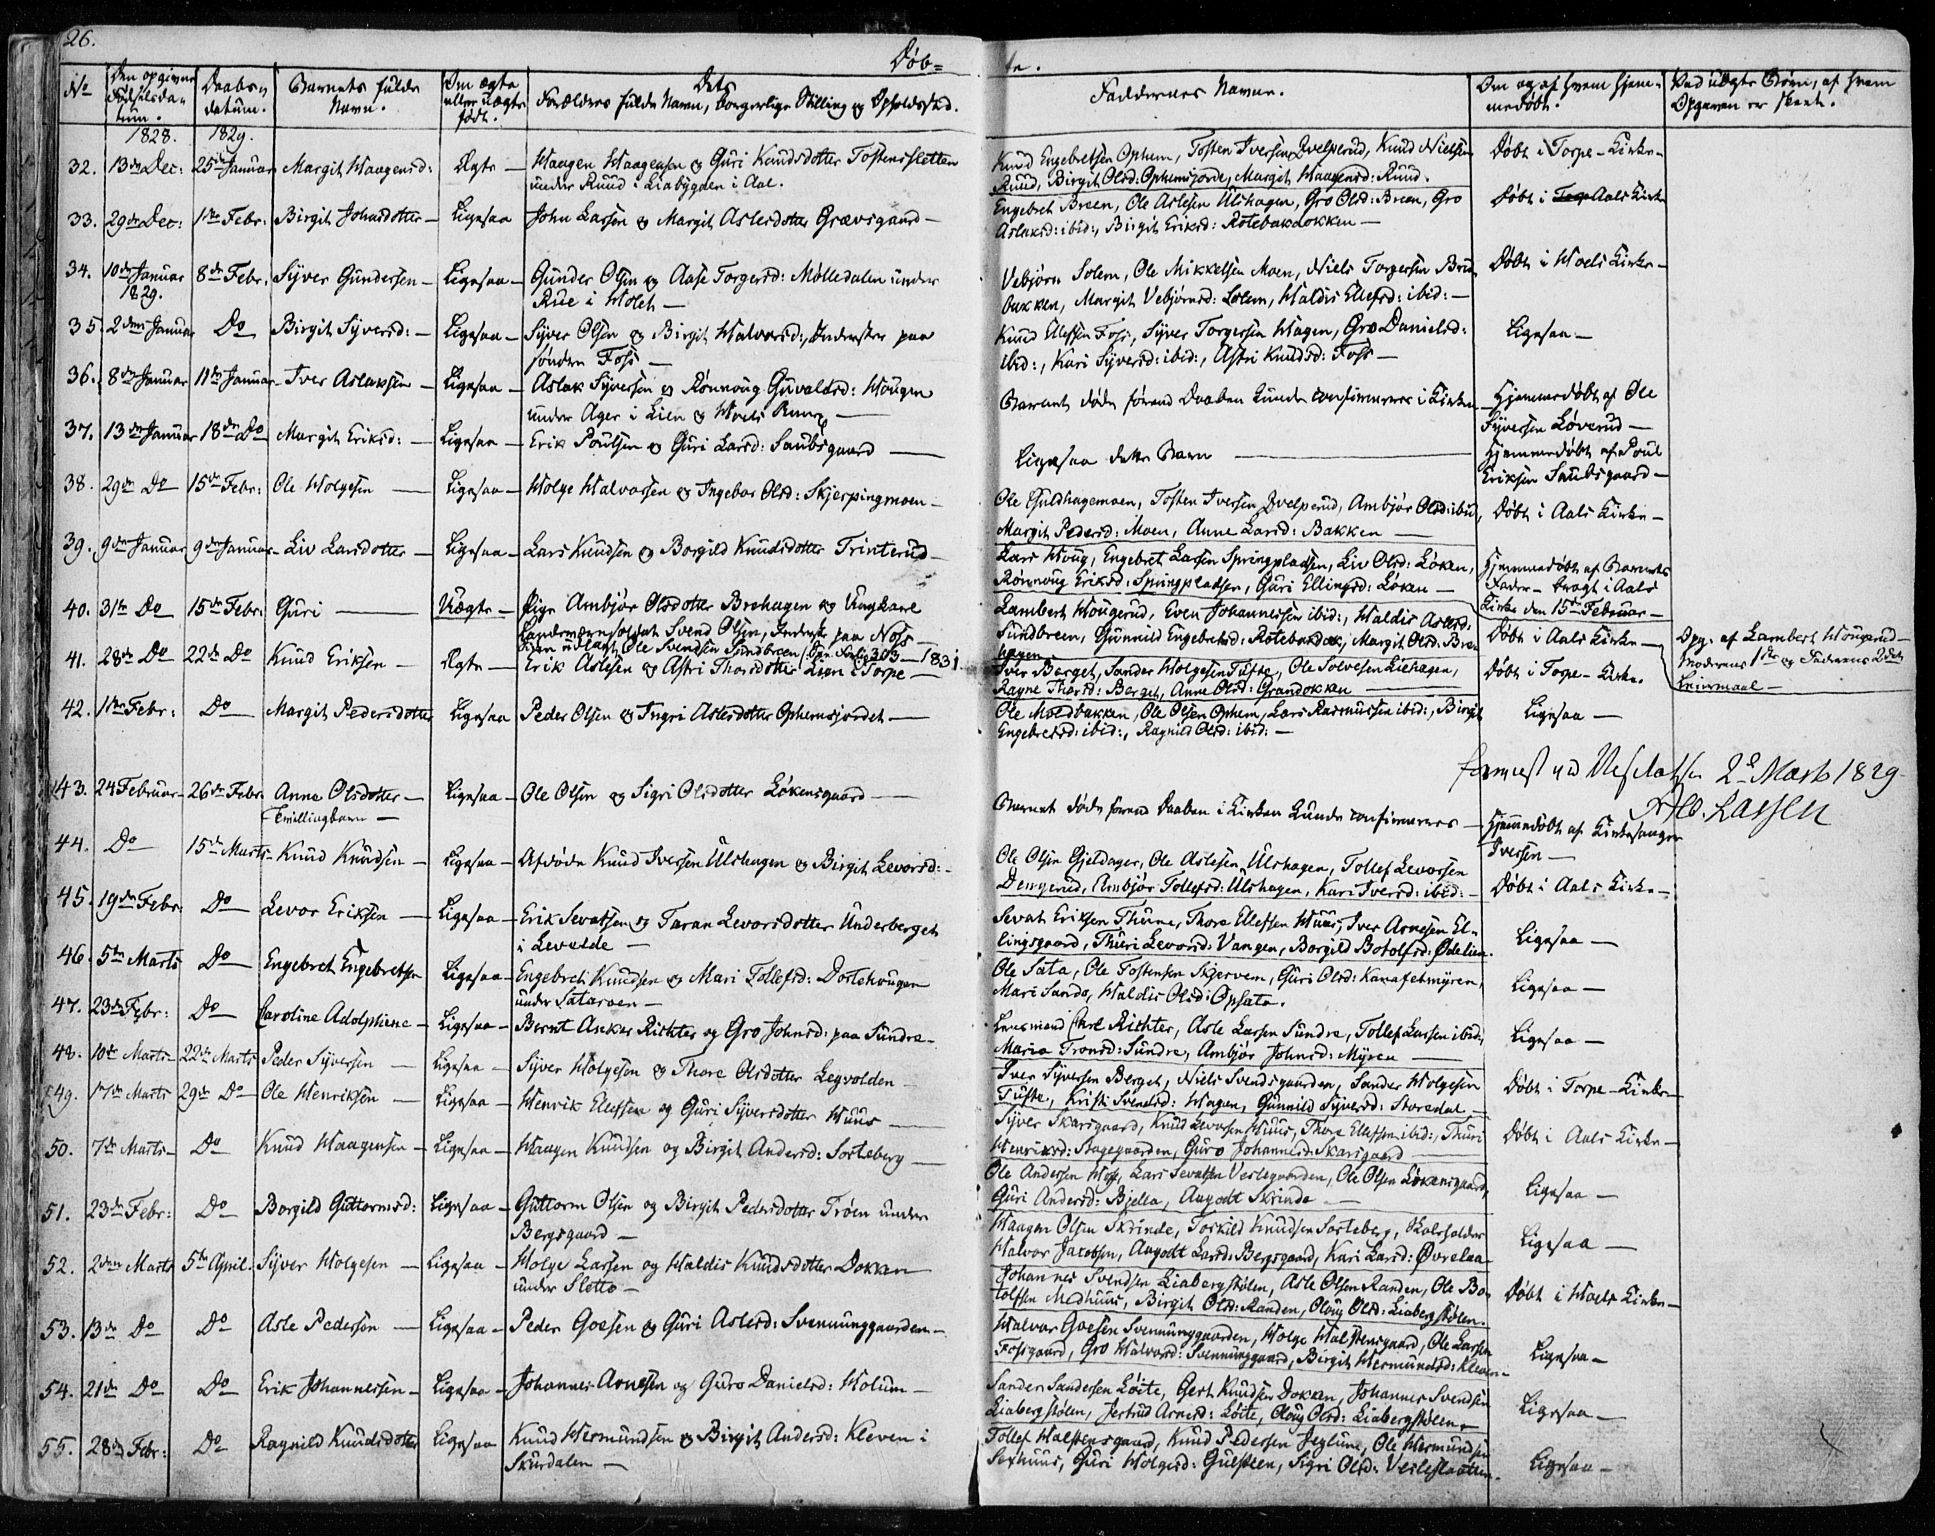 26.
Døb-
te.
No
Den opgivne Fødselsdatum.
Daabsdatum.
Barnets fulde Navn.
Om ægte eller uægte født.
Dets Forældres fulde Navn, borgerlige Stilling og Opholdssted.
Faddernes Navne.
Om og af hvem hjemmedøbt.
Ved uægte Børn, af hvem Opgaven er skeet.
1828. 1829.
32. 13de Dec: 25de Januar Margit Haagensd: Ægte - Haagen Haagensen og Guri Knudsdotter Tostensletten
under Ruud i Liabygden i Aal.
Knud Engebretsen Ophem, Tosten Iversen Qvelperud, Knud Nielsen
Ruud, Birgit Olsd: Ophemsjorde, Margit Haagensd: Ruud.
Døbt i Torpe-Kirke-
33. 29de Dec: 1ste Febr: Birgit Johnsdotter - Ligesaa John Larsen og Margit Aslesdotter Grævsgaard -
Engebret Breen, Ole Aslesen Ulshagen, Gro Olsd: Breen, Gro
Aslaksd: ibid:, Birgit Eriksd: Rotebakdokken -
Døbt i Aals Kirke
34. 10de Januar 8de Febr. Syver Gundersen - Ligesaa - Gunder Olsen og Aase Torgersd: Mølledalen under
1829.
Rue i Holet -
Vebjørn Solem, Ole Mikkelsen Moen, Niels Torgersen Brubakken, Margit Vebjørnsd: Solem, Haldis Ellefsd: ibid: -
Døbt i Hoels Kirke -
35. 2den Januar Do Birgit Syversd: - Ligesaa - Syver Olsen og Birgit Halvorsd:, Inderster paa
søndre Foss -
Knud Ellefsen Foss, Syver Torgersen Hagen, Gro Danielsd:
ibid:, Kari Syversd: ibid:, Astri Knudsd: Foss -
Ligesaa -
36. 8de Januar 11te Januar - Iver Aslaksen - Ligesaa - Aslak Syversen og Rønnoug Guvalsd: Hougen
under Ager i Lien og Hoels Annex -
Barnet døde førend Daaben kunde confirmeres i Kirken -
Hjemmedøbt af Ole
Syversen Løverud -
37. 13de Januar 18de Do Margit Eriksd: - Ligesaa - Erik Poulsen og Guri Larsd: Saubsgaard -
Ligesaa dette Barn -
Hjemmedøbt af Poul
Eriksen Saubsgaard -
38. 29de Do 15de Febr: Ole Holgesen - Ligesaa - Holge Halvorsen og Ingebor Olsd: Skjerpingmoen -
Ole Guldhagemoen, Tosten Iversen Qvelperud, Ambjør Olsd: ibid,
Margit Pedersd: Moen, Anne Larsd: Bakken -
Døbt i Aals Kirke -
39. 9de Januar 9de Januar - Liv Larsdotter - Ligesaa - Lars Knudsen og Borgild Knudsdotter Trinterud -
Lars Houg, Engebret Larsen Springpladsen, Liv Olsd: Løken,
Rønnoug Eriksd: Springpladsen, Guri Ellingsd: Løken -
Hjemmedøbt af Barnets
Fader - bragt i Aals
Kirke den 15de Februar -
40. 31te Do 15de Febr: Guri - Uægte - Pige Ambjør Olsdotter Brehagen og Ungkarl
Landeværnsoldat Svend Olsen, Inderst paa Noss -
303 - 1831
Lambert Hougerud, Even Johannessen ibid:, Haldis Aslesd:
Sundbreen, Gunnild Engebretsd: Rotebakdok, Margit Olsd: Brehagen -
Døbt i Aals Kirke -
Opg. af Lambert Hougerud -
Moderens 1ste og Faderens 2det
Leiermaal -
41. 28de Do 22de Do Knud Eriksen - Ægte - Erik Aslesen og Astri Thorsdotter Lien i Torpe -
Iver Berget, Sander Holgesen Tufte, Ole Solvesen Liehagen,
Ragne Thorsd: Berget, Anne Olsd: Grandokken -
Døbt i Torpe-Kirke.
42. 1ste Febr: Do Margit Pedersdotter Ligesaa Peder Olsen og Ingri Aslesdotter Ophemsjordet -
Ole Moldbakken, Ole Olsen Ophem, Lars Rasmussen ibid:, Birgit
Engebretsd: ibid:, Ragnild Olsd: ibid: -
Ligesaa -
2d Marts 1829
Lassen
43. 24 Februar - 26de Febr. Anne Olsdotter - Ligesaa - Ole Olsen og Sigri Olsdotter Løkensgaard -
Tvillingbarn -
Barnet døde førend Daaben i Kirken kunde confirmeres -
Hjemmedøbt af Kirkesanger
Iversen -
44. Do 15de Marts - Knud Knudsen - Ligesaa - Afdøde Knud Iversen Ulshagen og Birgit Levorsd: -
Ole Olsen Gjeldager, Ole Aslesen, Ulshagen, Tollef Levorsen
Dengerud, Ambjør Tollefsd: Ulshagen, Kari Iversd: ibid: -
Døbt i Aals Kirke -
45. 19de Febr. Do Levor Eriksen - Ligesaa - Erik Sevatsen og Taran Levorsdotter Underberget
i Levelde -
Sevat Eriksen Thune, Thore Ellefsen Huus, Iver Arnesen Ellingsgaard, Thuri Levorsd: Vangen, Borgild Botolfsd: Ødelien.
Ligesaa -
46. 5te Marts Do Engebret Engebretsen Ligesaa - Engebret Knudsen og Mari Tollefsd: Dortehougen
under Sataroen -
Ole Sata, Ole Tostensen Skjerven, Guri Olsd: Kanafetmyren,
Mari Sando, Haldis Olsd: Opsata.
Ligesaa -
47. 23de Febr: Do Caroline Adolphine - Ligesaa - Bernt Anker Richter og Gro Johnsd: paa Sundre -
Lensmand Carl Richter, Asle Larsen Sundre, Tollef Larsen ibid:,
Maria Tronsd: Sundre, Ambjør Johnsd: Myren -
Ligesaa -
48. 10de Marts - 22de Marts Peder Syversen - Ligesaa - Syver Holgesen og Thore Olsdotter Legvolden -
Iver Syversen Berget, Niels Svendsgaarden, Sander Holgesen
Tufte, Kristi Svendsd: Hagen, Gunnild Syversd: Storedal -
Døbt i Torpe-Kirke -
49. 17de Marts 29de Do Ole Henriksen - Ligesaa - Henrik Ellefsen og Guri Syversdotter Huus -
Syver Skarsgaard, Knud Levorsen Huus, Thore Ellefsen ibid:, Thuri
Henriksd: Stagegaarden, Guro Johannesd: Skarsgaard -
Døbt i Aals Kirke -
50. 7de Marts - Do Knud Haagensen - Ligesaa - Haagen Knudsen og Birgit Andersd: Sorteberg -
Ole Andersen Hoff, Lars Sevatsen Veslegaarden, Ole Olsen Løkensgaard,
Guri Andersd: Bjella, Angodt Skrinde -
Ligesaa -
51. 23de Febr: Do Borgild Guttormsd: Ligesaa - Guttorm Olsen og Birgit Pedersdotter Trøen under
Bergsgaard -
Haagen Olsen Skrinde, Torkild Knudsen Sorteberg, Skoleholder
Halvor Jacobsen, Angodt Larsd: Bergsgaard, Kari Larsd: Øvrelaa
Ligesaa -
52. 2den Marts 5te April. Syver Holgesen - Ligesaa - Holge Larsen og Haldis Knudsdotter Dokken
under Slotto -
Johannes Svendsen Liabergstølen, Asle Olsen Randen, Ole Botolfsen Medhuus, Birgit Olsd: Randen, Oloug Olsd: Liabergstølen.
Døbt i Hoels Kirke -
53. 13de Do Do Asle Pedersen - Ligesaa - Peder Goesen og Guri Aslesd: Svennunggaarden -
Halvor Goesen Svennunggaarden, Holge Halstensgaard, Ole Larsen
Fossgaard, Gro Halvorsd: Svennunggaard, Birgit Hermundsd: Kleven -
Ligesaa -
54. 21de Do Do Erik Johannessen - Ligesaa - Johannes Arnesen og Guro Danielsd: Holum -
Sander Sandersen Løite, Gert Knudsen Dokken, Johannes Svendsen
Liabergstølen, Jertrud Arnesd: Løite, Oloug Olsd: Liabergstølen -
Ligesaa -
55. 28de Febr: Do Ragnild Knudsdotter Ligesaa Knud Hermundsen og Birgit Andersd: Kleven i
Skurdalen -
Tollef Halstensgaard, Knud Pedersen Jeglum, Ole Hermundsen
Sexhuus, Guri Holgesd: Gulsteen, Sigri Olsd: Vesleslaatten.
Ligesaa -